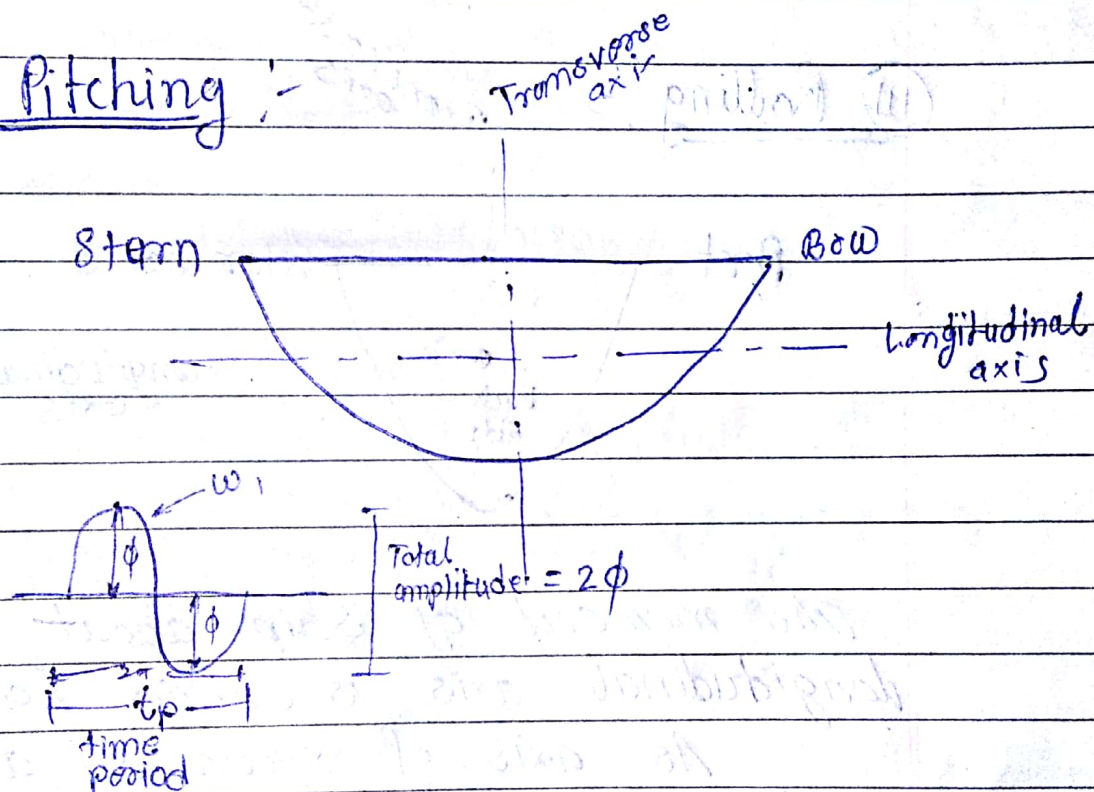 Pitching :-
Transverse
axis
Stern
Bow
Longitudinal
axis
ω1
ϕ
Total
amplitude = 2ϕ
ϕ
2π
tp
time
period